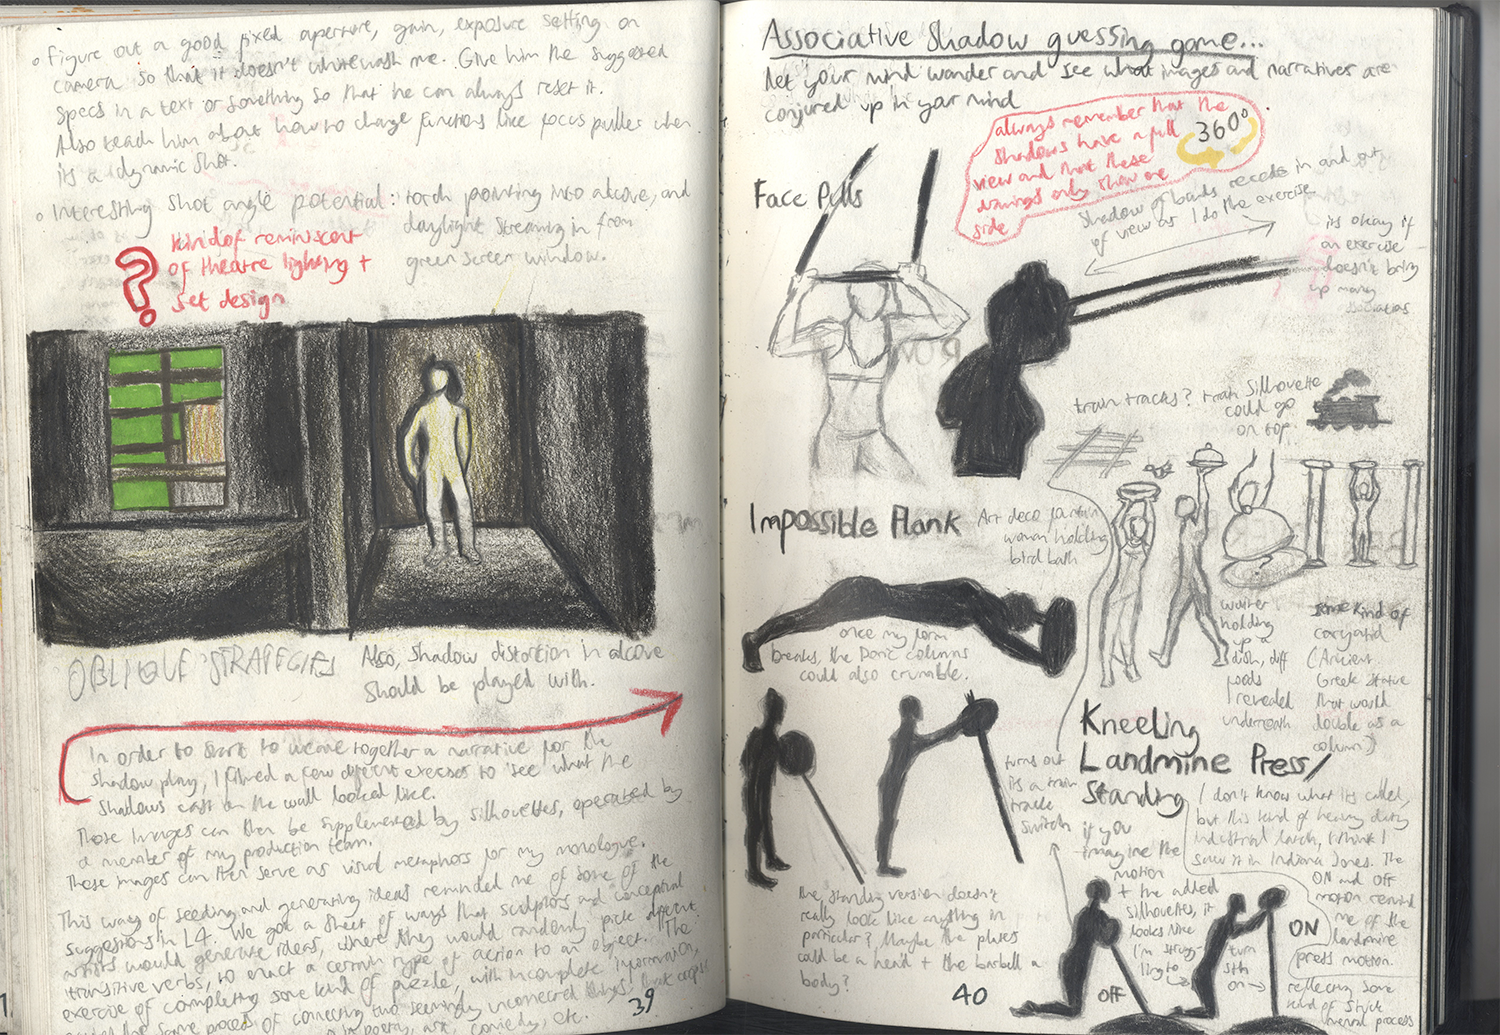 o Figure out a good fixed aperture, gain, exposure setting on
camera so that it doesn't whitewash me. Give him the suggested
specs in a text or something so that he can always reset it.
Also teach him about how to change functions like focus puller when
its a dynamic shot.
o Interesting shot angle potential: torch pointing into alcove, and
daylight streaming in from
green screen window.
?
kind of reminiscent
of theatre lighting +
set design
OBLIQUE STRATEGIES
Also, shadow distortion in alcove
should be played with.
In order to start to weave together a narrative for the
shadow play, I filmed a few different exercises to see what the
shadows cast on the wall looked like.
These images can then be supplemented by silhouettes, operated by
a member of my production team.
These images can then serve as visual metaphors for my monologue.
This way of seeding and generating ideas reminded me of some of the
suggestions in L4. We got a sheet of ways that sculptors and conceptual
artists would generate ideas, where they would randomly pick different
transitive verbs, to enact a certain type of action to an object. The
exercise of completing some kind of puzzle, with incomplete information,
the same process of connecting two seemingly unconnected things
in poetry, art, comedy, etc.
39
Associative Shadow guessing game...
Let your mind wander and see what images and narratives are
conjured up in your mind
always remember that the
shadows have a full 360°
view and that these
drawings only show one
side
Face Pulls
Shadow of bands recedes in and out
of view as I do the exercise
its okay if
an exercise
doesn't bring
up many
associations
train tracks? train silhouette
could go
on top.
Impossible Plank
Art deco fountain
woman holding
bird bath
once my form
breaks, the Doric columns
could also crumble.
waiter
holding
up a
dish, diff
foods
revealed
underneath
some kind of
caryatid
(Ancient
Greek statue
that would
double as a
column)
Kneeling
Landmine Press/
Standing
turns out
its a train
track
switch
if you
imagine the
motion
+ the added
silhouettes, it
looks like
I'm strugg-
ling to
turn
sth
on
I don't know what its called,
but this kind of heavy duty
industrial latch, I think I
saw it in Indiana Jones. The
ON and OFF
motion remind
me of the
landmine
press motion.
reflecting some
kind of
process
the standing version doesn't
really look like anything in
particular? Maybe the plates
could be a head + the barbell a
body?
40
OFF
ON